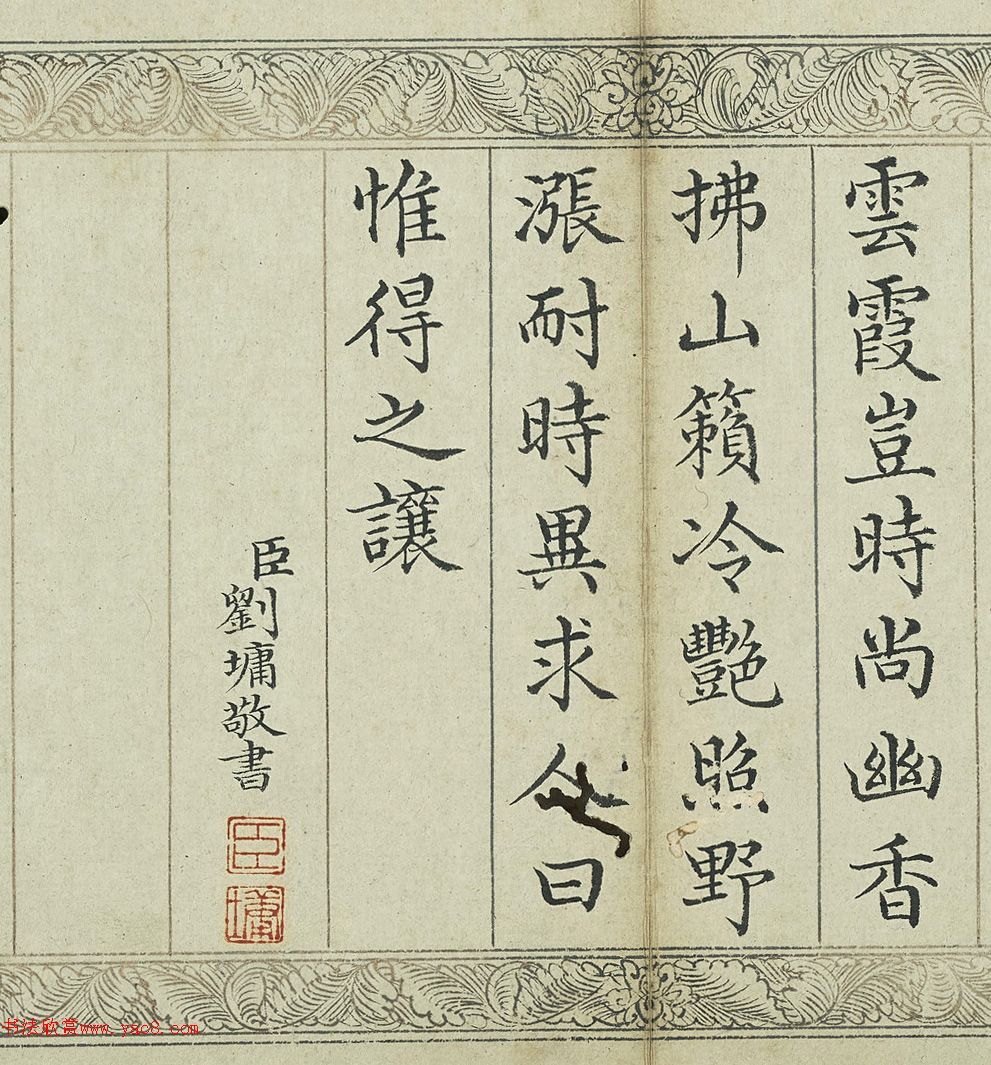 雲霞豈時尚幽香
拂山籟冷艷照野
漲耐時異求曰
惟得之讓
臣劉墉敬書
臣
墉
书法欣赏www.yac8.com